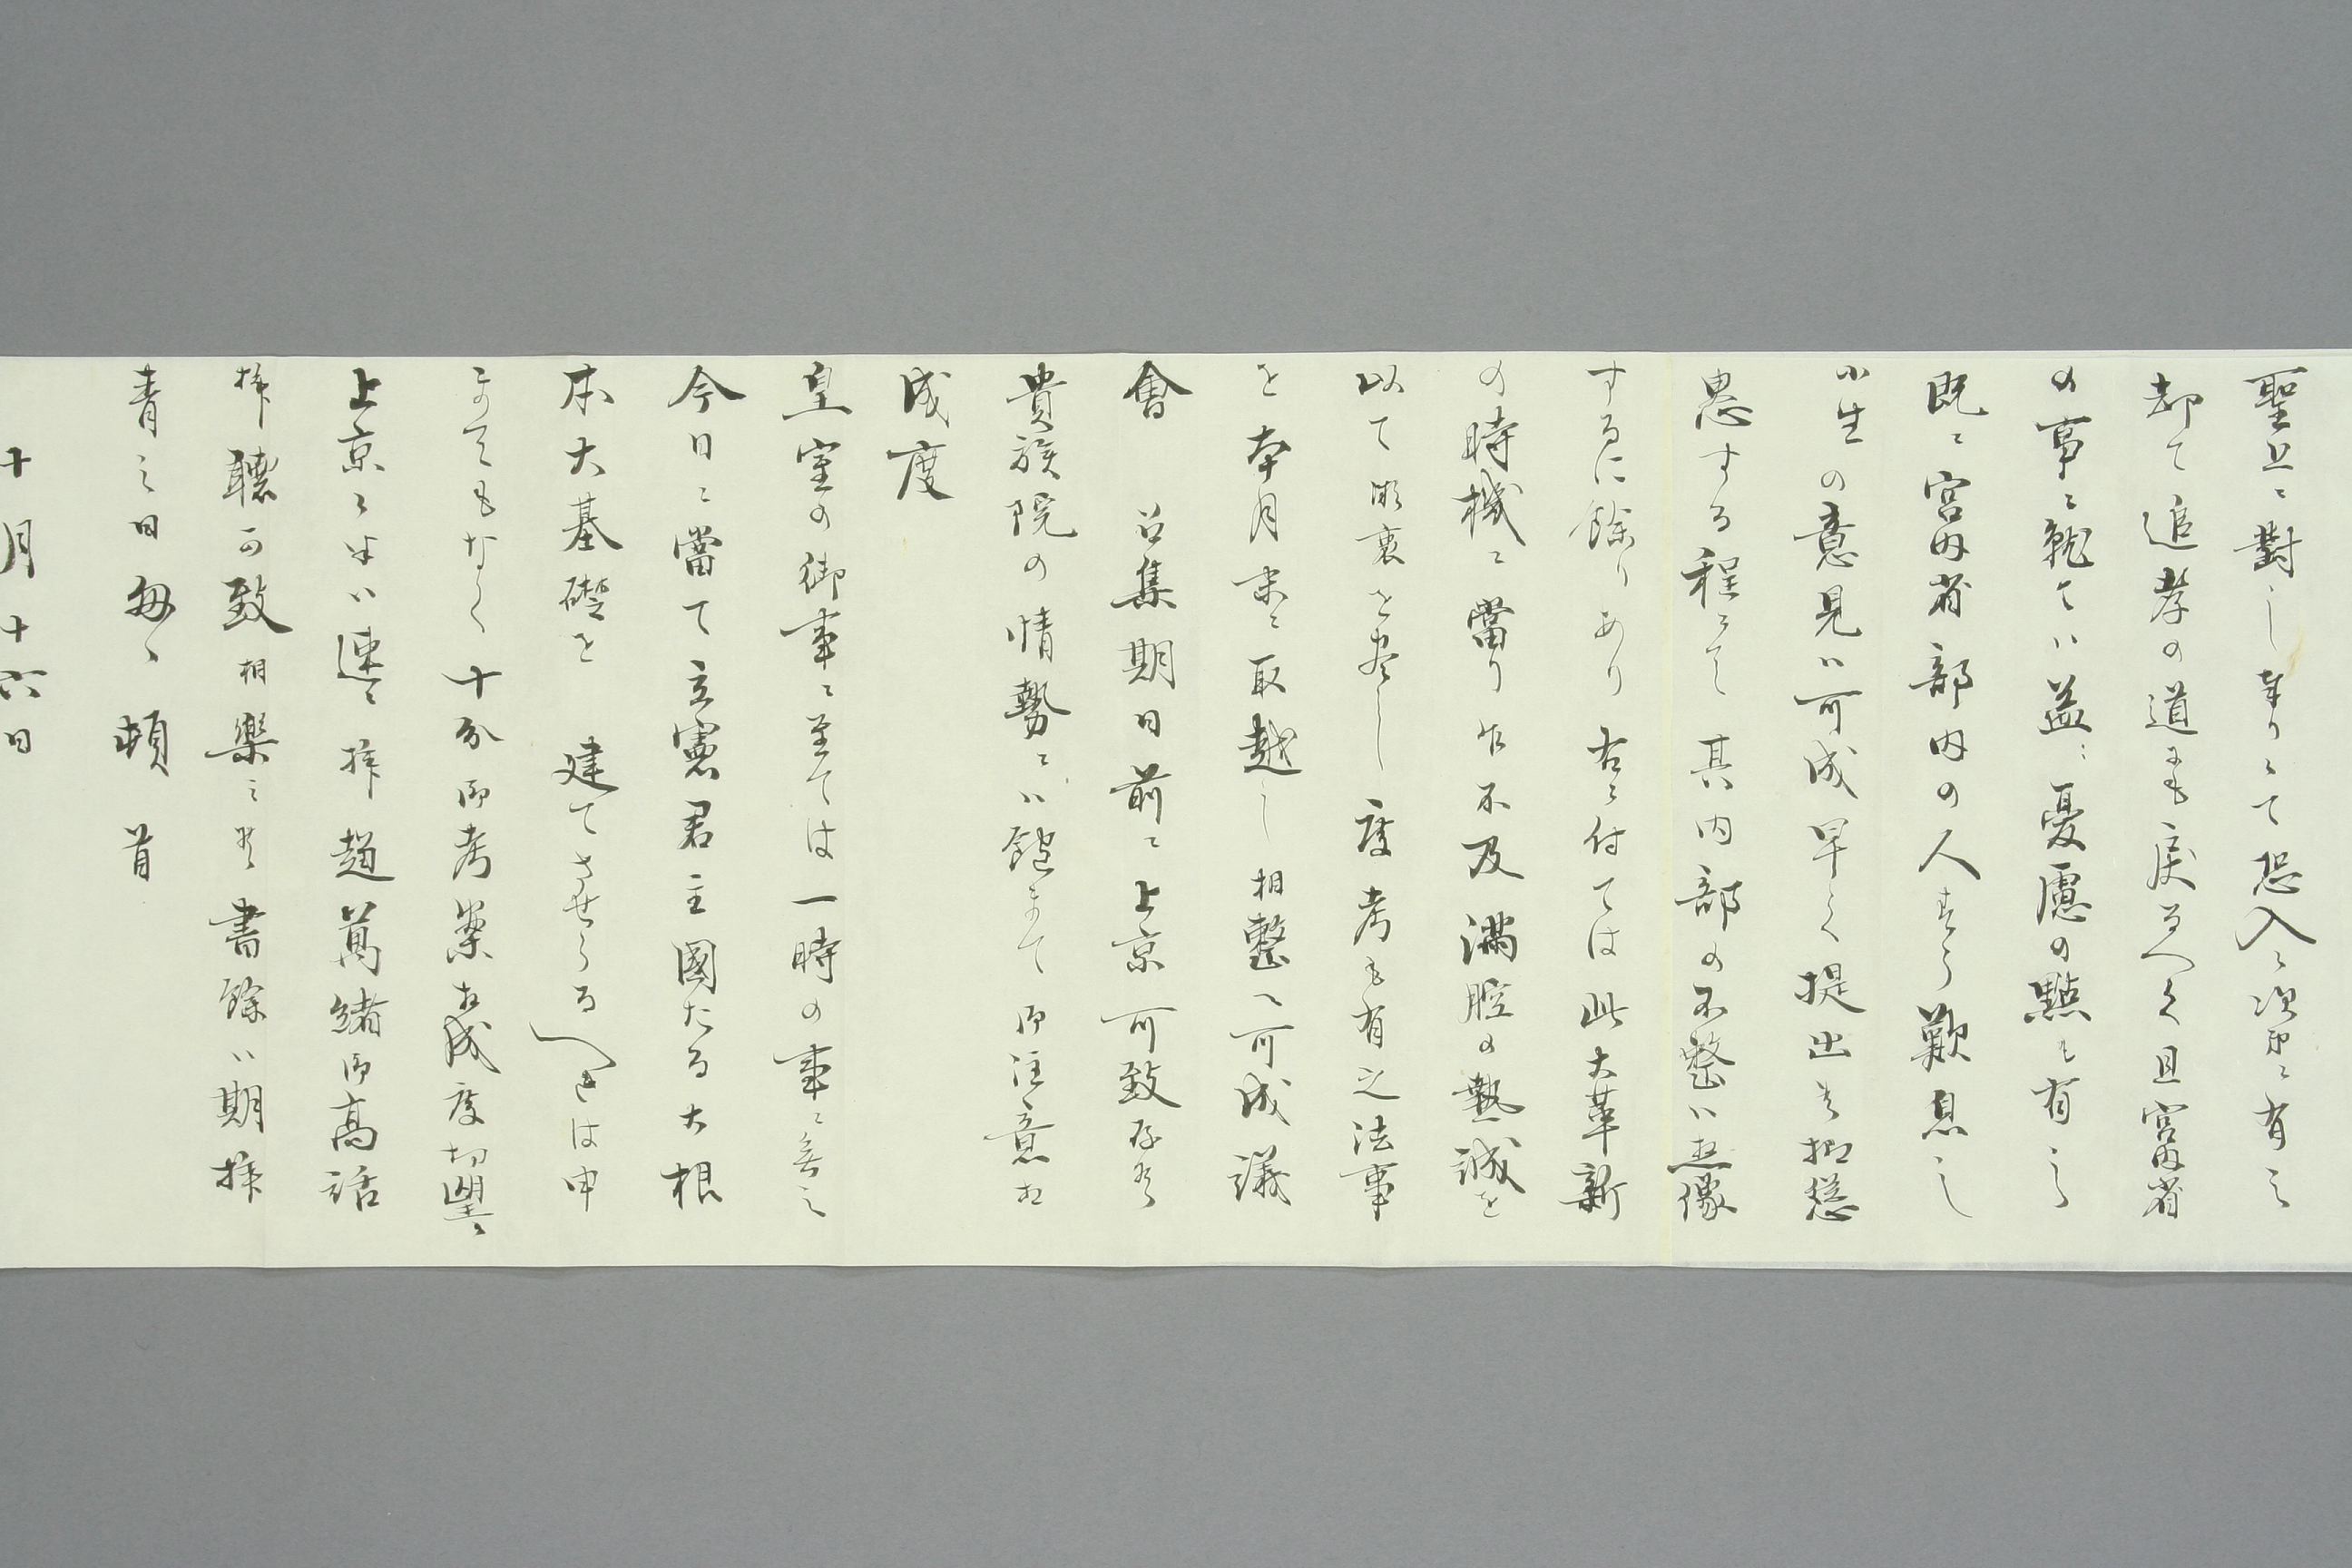 聖上ニ對し奉りて恐入ル次第ニ有之
却て追孝の道にも戻るへく且宮内省
の事ニ就ては益々憂慮の點も有之
既ニ宮内省部内の人すら歎息し
小生の意見ハ可成早く提出を慫
慂する程にて其内部の不整ハ想像
するに餘りあり右ニ付ては此大革新
の時機ニ當り乍不及満腔の熱誠を
以て微衷を尽し度考も有之法事
を本月末ニ取越し相整へ可成議
會召集期日前ニ上京可致存候
貴族院の情勢ニハ飽まて御注意相
成度
皇室の御事ニ至ては一時の事ニ無之
今日ニ當て立憲君主國たる大根
本大基礎を建てさせらるへきは申
まてもなく十分御考案相成度切望候
上京候はハ速ニ拝趨萬緒御高話
拝聴可致相樂ミ候書餘ハ期拝
青之日匆々頓首
十月十六日